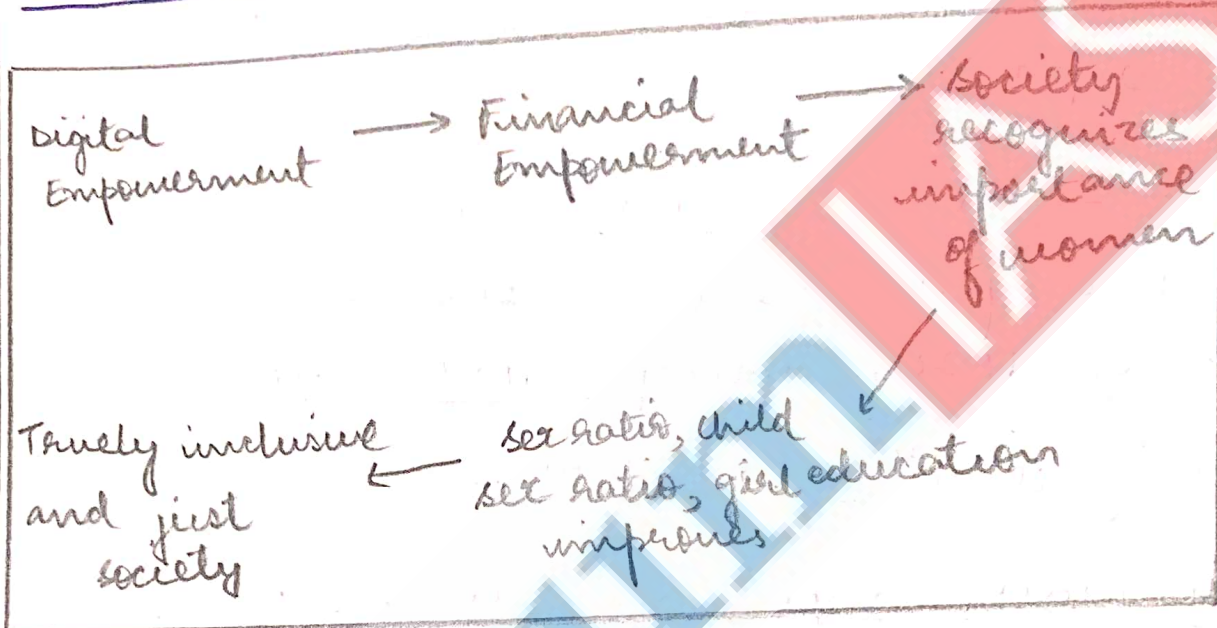 Digital
Empowerment
Financial
Empowerment
society
recognizes
importance
of women
sex ratio, child
sex ratio, girl education
improves
Truely inclusive
and just
society
IAS